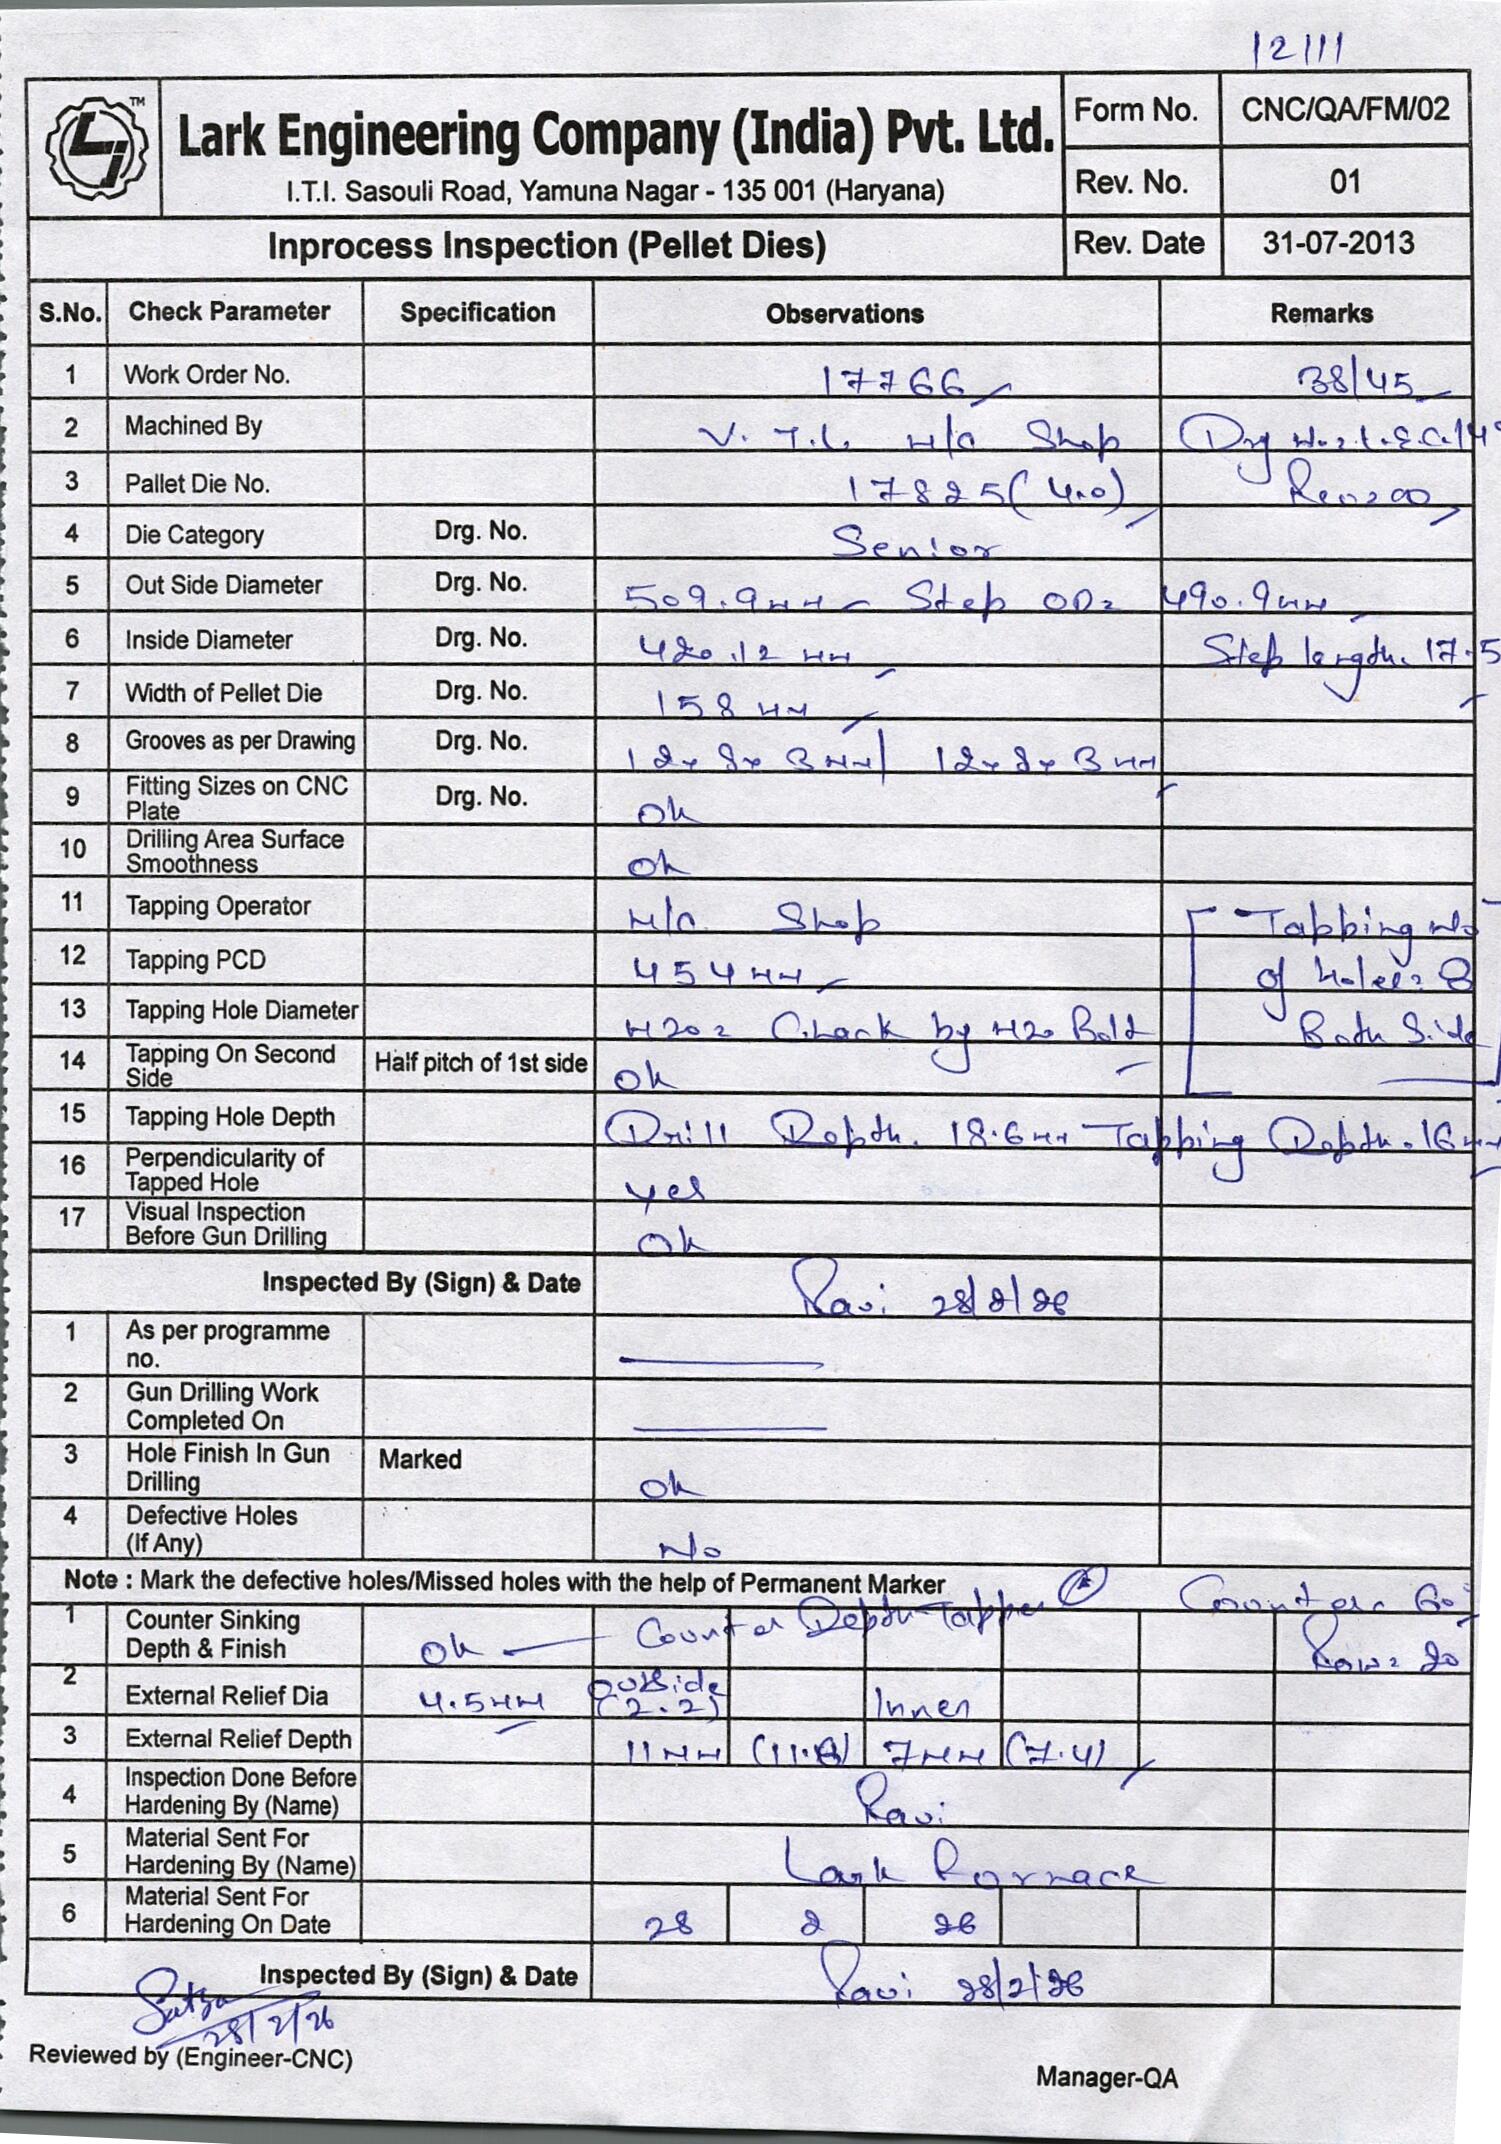 12111
TM
Lark Engineering Company (India) Pvt. Ltd.
I.T.I. Sasouli Road, Yamuna Nagar - 135 001 (Haryana)
Form No. CNC/QA/FM/02
Rev. No. 01
Inprocess Inspection (Pellet Dies) Rev. Date 31-07-2013
S.No. Check Parameter Specification Observations Remarks
1 Work Order No. 17766 38/45
2 Machined By V.T.L M/C Shop Drg No: L.E.C.14
3 Pallet Die No. 17825 (4.0) Rev: 00
4 Die Category Drg. No. Senior
5 Out Side Diameter Drg. No. 509.9mm Step OD: 490.9mm
6 Inside Diameter Drg. No. 420.12 mm Step length. 17.5
7 Width of Pellet Die Drg. No. 158 mm
8 Grooves as per Drawing Drg. No. 12x8x3mm / 12x8x3mm
9 Fitting Sizes on CNC Plate Drg. No. Ok
10 Drilling Area Surface Smoothness Ok
11 Tapping Operator M/C Shop Tapping No
12 Tapping PCD 454mm of holes: 8
13 Tapping Hole Diameter M20: Chack by M20 Bolt Both Side
14 Tapping On Second Side Half pitch of 1st side Ok
15 Tapping Hole Depth Drill Depth. 18.6mm Tapping Depth. 16mm
16 Perpendicularity of Tapped Hole yes
17 Visual Inspection Before Gun Drilling Ok
Inspected By (Sign) & Date Ravi 28/2/26
1 As per programme no.
2 Gun Drilling Work Completed On
3 Hole Finish In Gun Drilling Marked Ok
4 Defective Holes (If Any) No
Note : Mark the defective holes/Missed holes with the help of Permanent Marker
1 Counter Sinking Depth & Finish Ok Counter Depth Tapper Counter 60°
Row: 20
2 External Relief Dia 4.5mm Outside (2.2) Inner
3 External Relief Depth 11mm 7mm (7.4)
4 Inspection Done Before Hardening By (Name) Ravi
5 Material Sent For Hardening By (Name) Lark Fornace
6 Material Sent For Hardening On Date 28 2 26
Inspected By (Sign) & Date Ravi 28/2/26
28/2/26
Reviewed by (Engineer-CNC)
Manager-QA